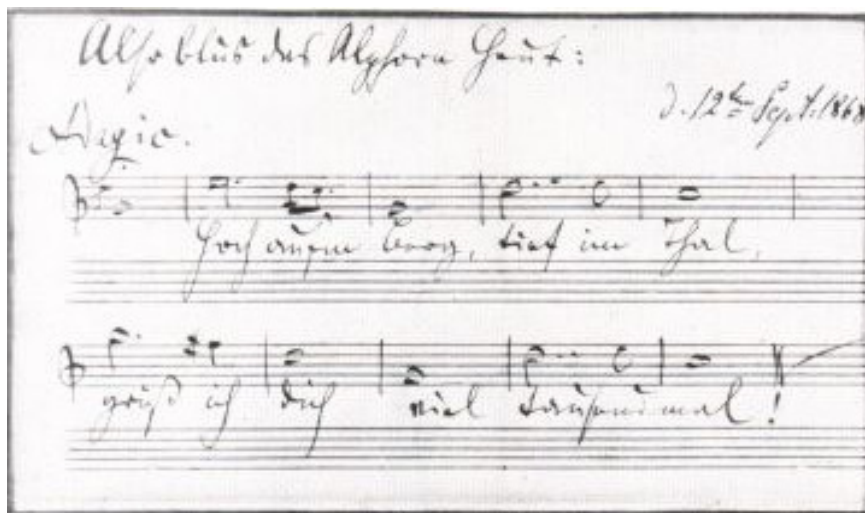 Also blus das Alphorn heut:
d. 12ten Sept. 1868
Adagio.
Hoch aufm Berg, tief im Thal,
grüß ich dich viel tausendmal!